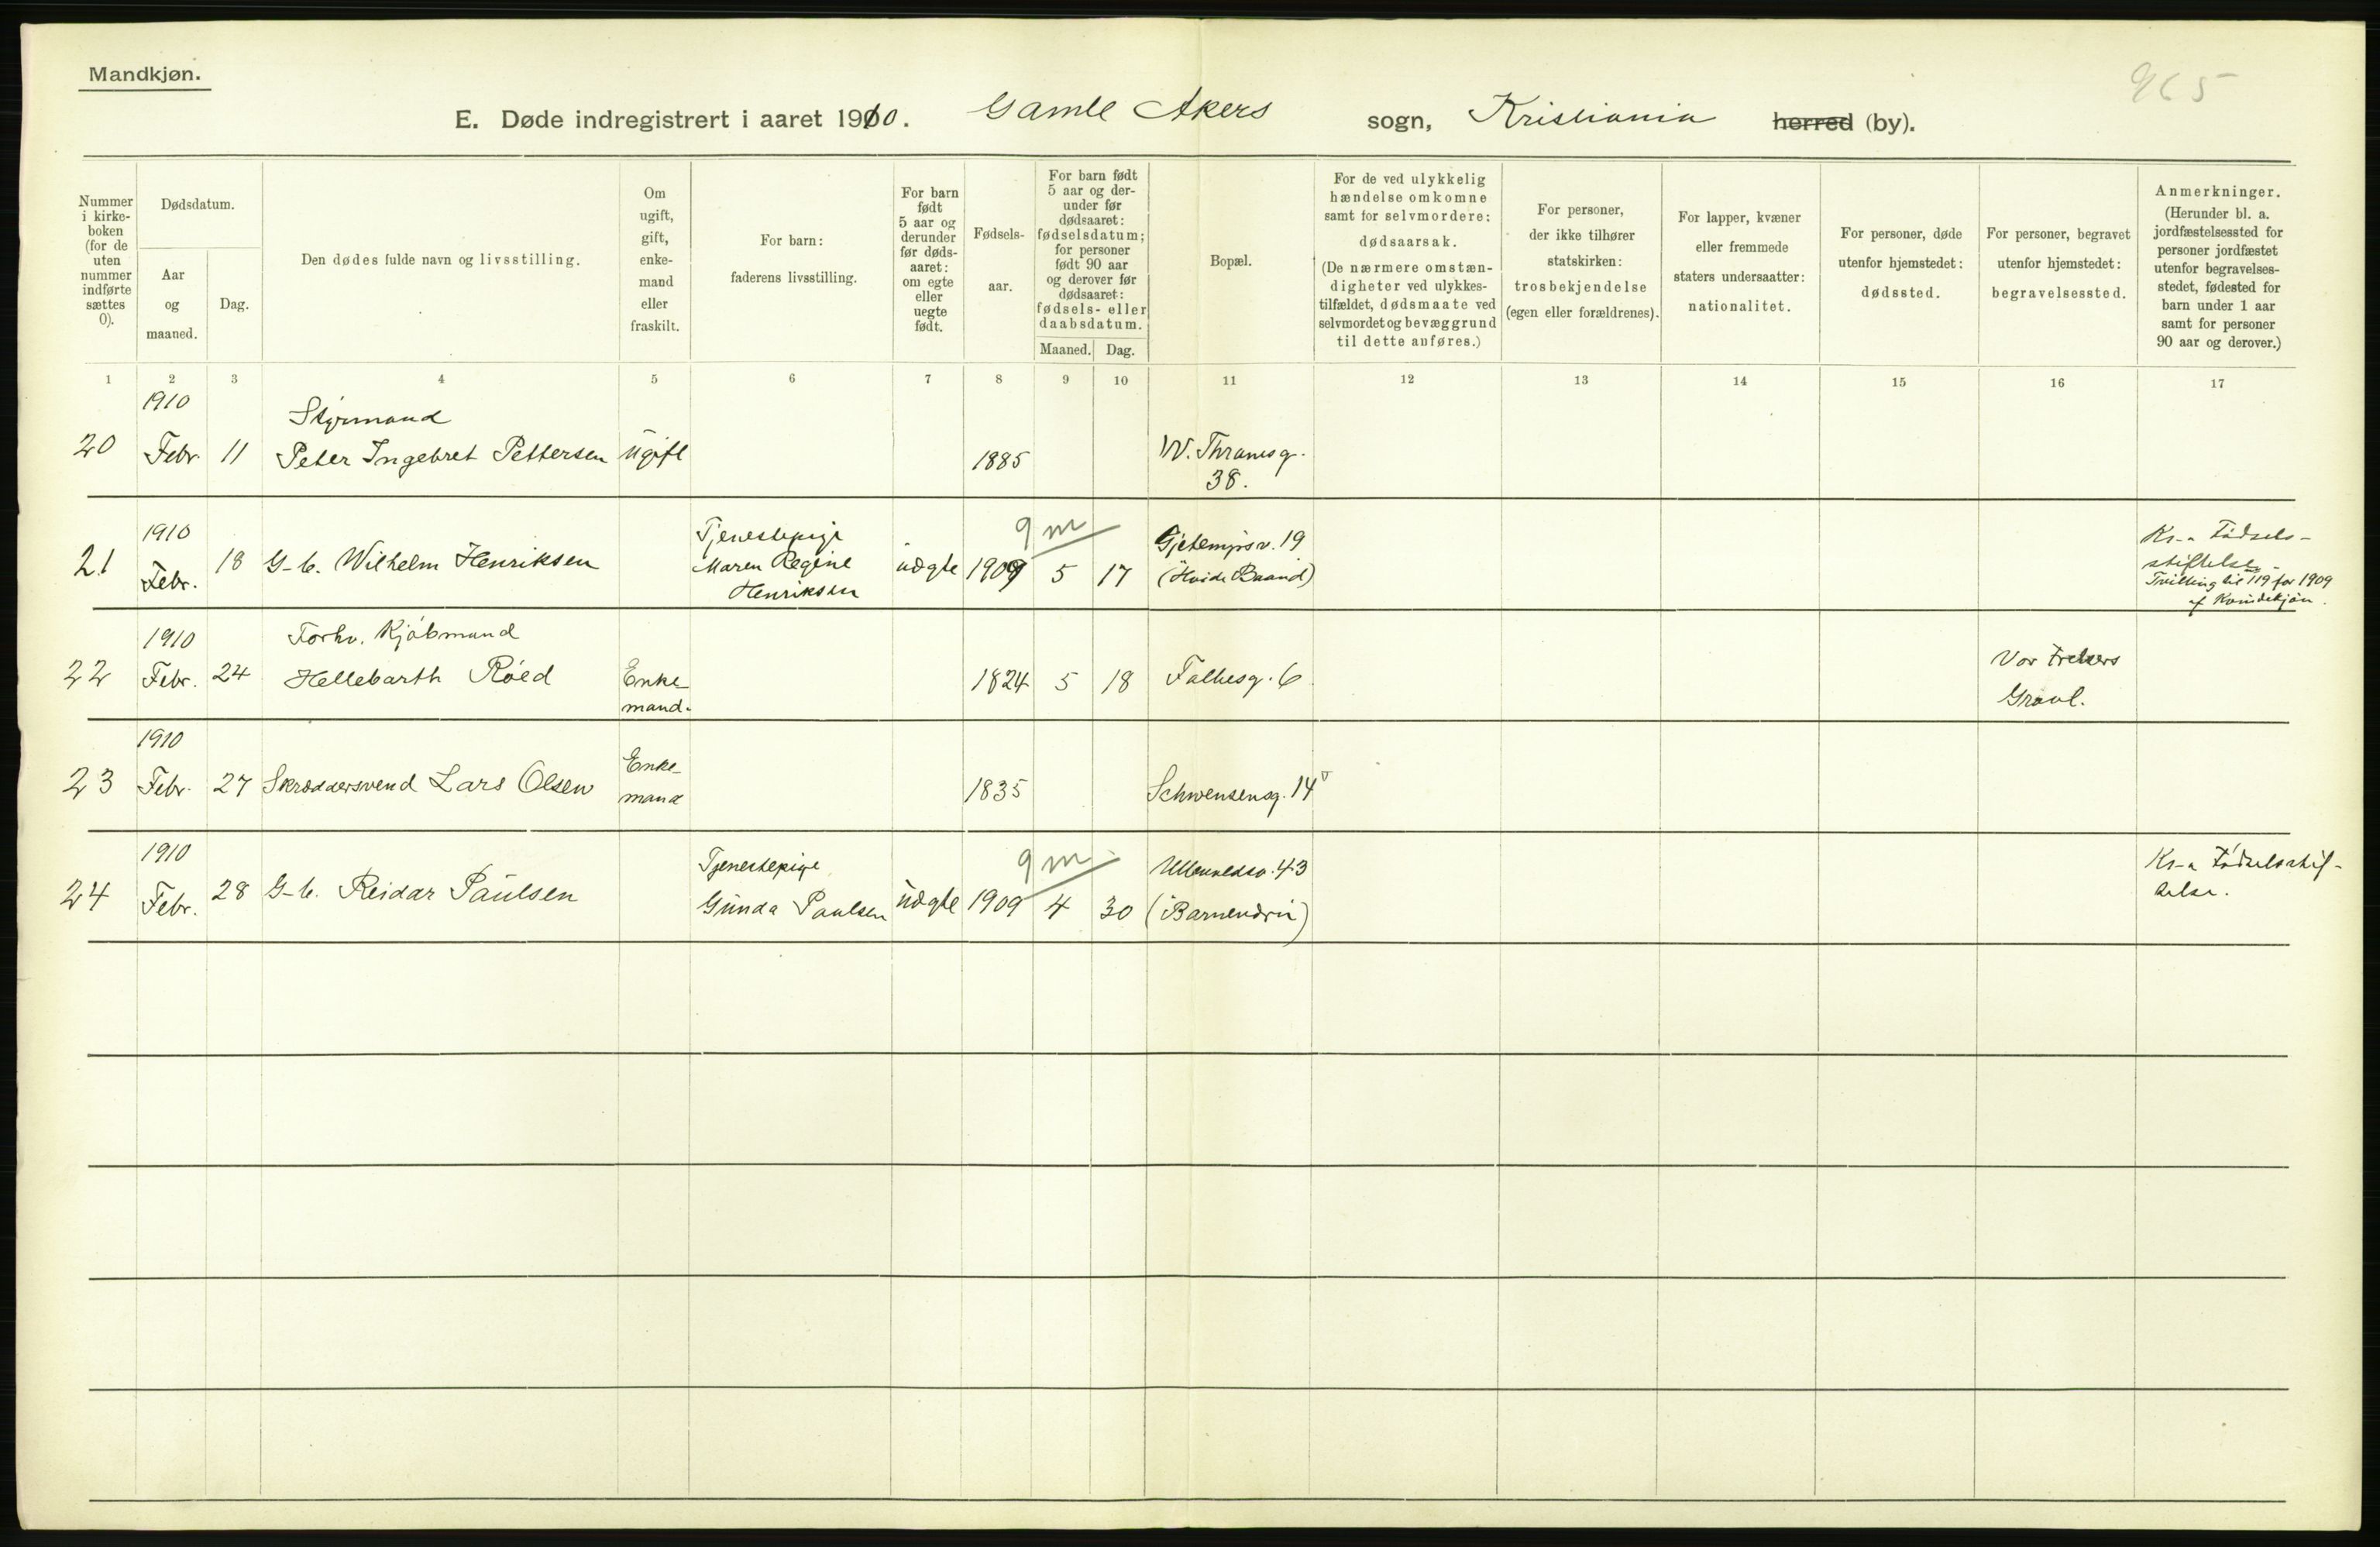 Mandkjøn.
965
E. Døde indregistrert i aaret 1910. Gamle Akers sogn, Kristiania herred (by).
Nummer i kirkeboken (for de uten nummer indførte sættes 0).
Dødsdatum.
Aar og maaned.
Dag.
Den dødes fulde navn og livsstilling.
Om ugift, gift, enkemand eller fraskilt.
For barn: faderens livsstilling.
For barn født 5 aar og derunder før dødsaaret: om egte eller uegte født.
Fødselsaar.
For barn født 5 aar og derunder før dødsaaret: fødselsdatum; for personer født 90 aar og derover før dødsaaret: fødsels- eller daabsdatum.
Maaned.
Dag.
Bopæl.
For de ved ulykkelig hændelse omkomne samt for selvmordere: dødsaarsak. (De nærmere omstændigheter ved ulykkestilfældet, dødsmaate ved selvmordet og bevæggrund til dette anføres.)
For personer, der ikke tilhører statskirken: trosbekjendelse (egen eller forældrenes).
For lapper, kvæner eller fremmede staters undersaatter: nationalitet.
For personer, døde utenfor hjemstedet: dødssted.
For personer, begravet utenfor hjemstedet: begravelsessted.
Anmerkninger. (Herunder bl. a. jordfæstelsessted for personer jordfæstet utenfor begravelsesstedet, fødested for barn under 1 aar samt for personer 90 aar og derover.)
1 2 3 4 5 6 7 8 9 10 11 12 13 14 15 16 17
1910 Styrmand
20 Febr. 11 Peter Ingebret Pettersen ugift 1885 W. Thranesg. 38.
1910 Tjenestepige 9 m
21 Febr. 18 G-b. Wilhelm Henriksen Maren Regine Henriksen uægte 1909 5 17 Gjetemyrsv. 19 (Hvide Baand) Kr-a Fødselsstiftelse. Tvilling til 119 for 1909 af Kvindekjøn.
1910 Forhv. Kjøbmand
22 Febr. 24 Hellebarth Röed Enkemand. 1824 5 18 Falbesg. 6 Vor Frelsers Gravl.
1910
23 Febr. 27 Skræddersvend Lars Olsen Enkemand 1835 Schwensensg. 14
1910 Tjenestepige 9 m
24 Febr. 28 G-b. Reidar Paulsen Gunda Paulsen uægte 1909 4 30 Ullevoldsv. 43 Kr-a Fødselsstiftelse.